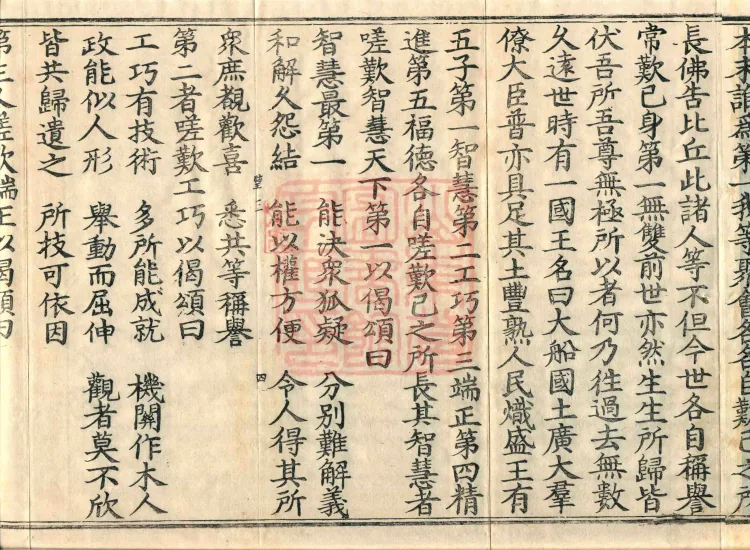 本末諍為第一我等聚會各各自歎己之所
長佛告比丘此諸人等不但今世各自稱譽
常歎己身第一無雙前世亦然生生所歸皆
伏吾所吾尊無極所以者何乃往過去無數
久遠世時有一國王名曰大船國土廣大羣
僚大臣普亦具足其土豐熟人民熾盛王有
五子第一智慧第二工巧第三端正第四精
進第五福德各自嗟歎己之所長其智慧者
嗟歎智慧天下第一以偈頌曰
智慧最第一 能決衆狐疑 分別難解義
和解久怨結 能以權方便 令人得其所
衆庶覩歡喜 悉共等稱譽
第二者嗟歎工巧以偈頌曰
工巧有技術 多所能成就 機關作木人
政能似人形 舉動而屈伸 觀者莫不欣
皆共歸遺之 所技可依因
第三人嗟歎端正以偈頌曰
四